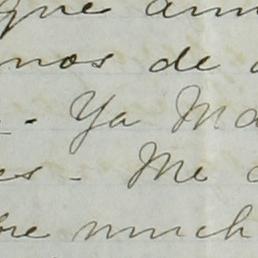 que
nos de
. Ya Ma
es - Me
re much